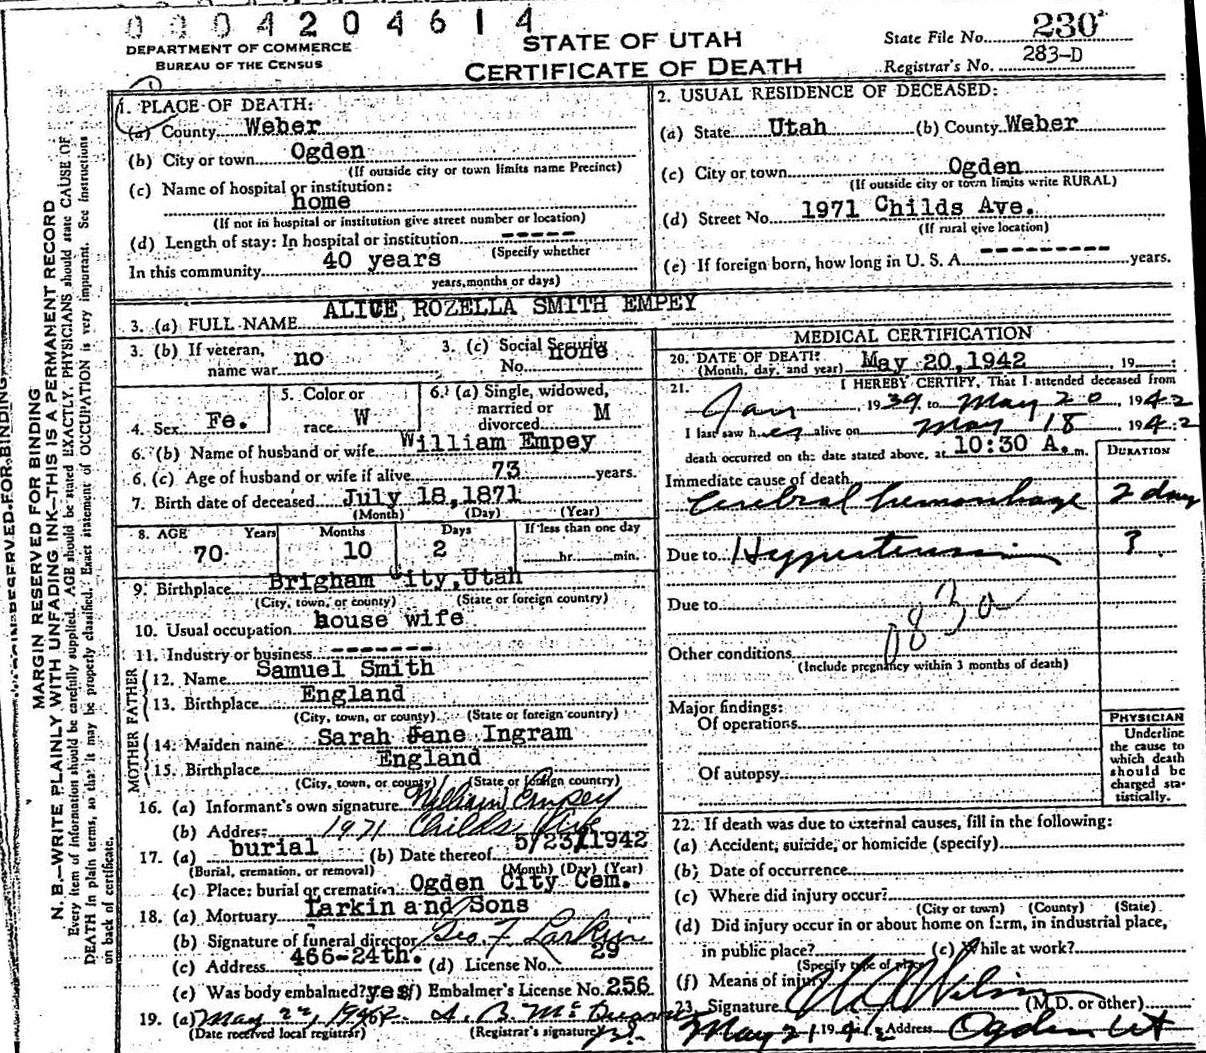 0004204614
DEPARTMENT OF COMMERCE
BUREAU OF THE CENSUS
STATE OF UTAH
CERTIFICATE OF DEATH
State File No. 230
Registrar's No. 283-D
MARGIN RESERVED FOR BINDING
N. B.—WRITE PLAINLY WITH UNFADING INK—THIS IS A PERMANENT RECORD
Every item of information should be carefully supplied. AGE should be stated EXACTLY. PHYSICIANS should state CAUSE OF
DEATH in plain terms, so that it may be properly classified. Exact statement of OCCUPATION is very important. See Instructions
on back of certificate.
1. PLACE OF DEATH:
(a) County Weber
(b) City or town Ogden
(If outside city or town limits name Precinct)
(c) Name of hospital or institution:
home
(If not in hospital or institution give street number or location)
(d) Length of stay: In hospital or institution -----
(Specify whether
In this community 40 years
years, months or days)
2. USUAL RESIDENCE OF DECEASED:
(a) State Utah (b) County Weber
(c) City or town Ogden
(If outside city or town limits write RURAL)
(d) Street No. 1971 Childs Ave.
(If rural give location)
(e) If foreign born, how long in U. S. A. --------- years.
3. (a) FULL NAME ALICE ROZELLA SMITH EMPEY
3. (b) If veteran, name war no
3. (c) Social Security No. none
4. Sex Fe.
5. Color or race W
6. (a) Single, widowed, married or divorced M
6. (b) Name of husband or wife William Empey
6. (c) Age of husband or wife if alive 73 years.
7. Birth date of deceased July 18, 1871
(Month) (Day) (Year)
8. AGE Years Months Days If less than one day
70 10 2 hr. min.
9. Birthplace Brigham City, Utah
(City, town, or county) (State or foreign country)
10. Usual occupation house wife
11. Industry or business -------
FATHER
12. Name Samuel Smith
13. Birthplace England
(City, town, or county) (State or foreign country)
MOTHER
14. Maiden name Sarah Jane Ingram
15. Birthplace England
(City, town, or county) (State or foreign country)
16. (a) Informant's own signature William Empey
(b) Address 1971 Childs Ave
17. (a) burial (b) Date thereof 5/23/1942
(Burial, cremation, or removal) (Month) (Day) (Year)
(c) Place: burial or cremation Ogden City Cem.
18. (a) Mortuary Larkin and Sons
(b) Signature of funeral director Geo. F Larkin
(c) Address 466-24th. (d) License No. 29
(e) Was body embalmed? yes (f) Embalmer's License No. 256
19. (a) May 22, 1942
(Date received local registrar) (Registrar's signature)
MEDICAL CERTIFICATION
20. DATE OF DEATH: May 20, 1942, 19
(Month, day, and year)
21. I HEREBY CERTIFY, That I attended deceased from
Jan, 1939, to May 20, 1942
I last saw her alive on May 18 1942
death occurred on the date stated above, at 10:30 A. m.
DURATION
Immediate cause of death
Cerebral hemorrhage 2 day
Due to Hypertension ?
Due to
083a
Other conditions
(Include pregnancy within 3 months of death)
Major findings:
Of operations
Of autopsy
PHYSICIAN
Underline
the cause to
which death
should be
charged sta-
tistically.
22. If death was due to external causes, fill in the following:
(a) Accident, suicide, or homicide (specify)
(b) Date of occurrence
(c) Where did injury occur?
(City or town) (County) (State)
(d) Did injury occur in or about home on farm, in industrial place,
in public place? (e) While at work?
(Specify type of place)
(f) Means of injury
23. Signature (M.D. or other)
May 21 1942 Address Ogden Ut